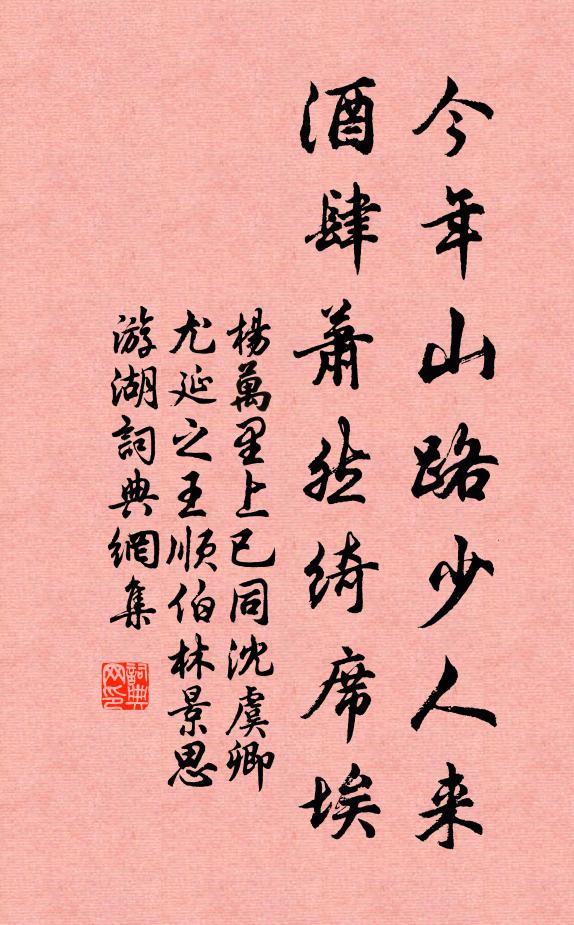 今年山路少人来
酒肆蕭然綺席埃
楊萬里上巳同沈虞卿
尤延之王順伯林景思
游湖詞典網集
詞典网印